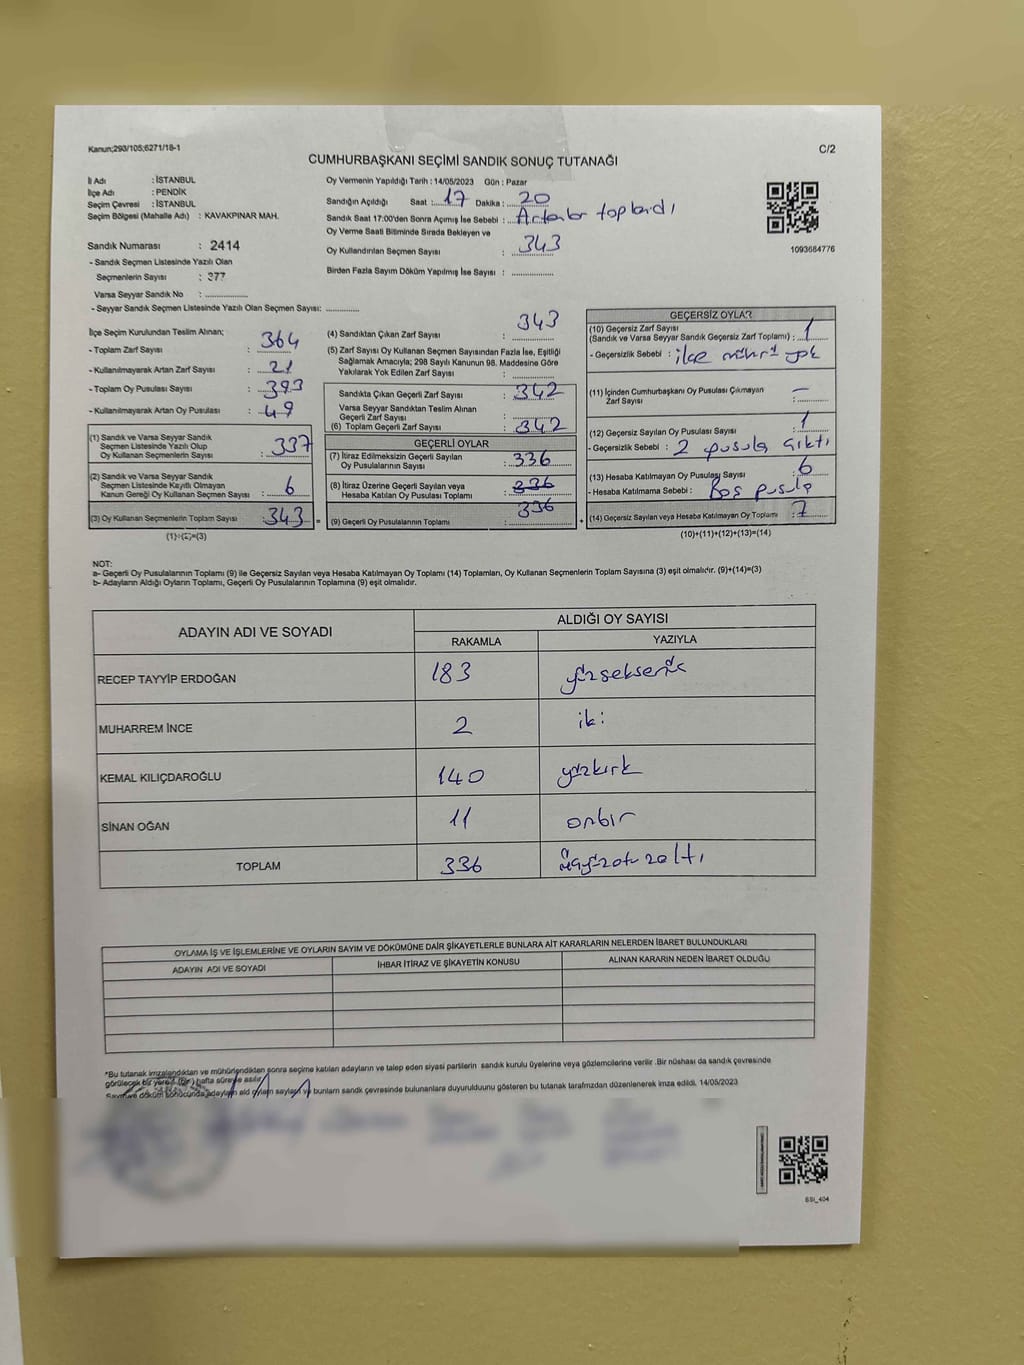 Kanun;298/105;6271/18-1
C/2
CUMHURBAŞKANI SEÇİMİ SANDIK SONUÇ TUTANAĞI
İl Adı : İSTANBUL
İlçe Adı : PENDİK
Seçim Çevresi : İSTANBUL
Seçim Bölgesi (Mahalle Adı) : KAVAKPINAR MAH.
Sandık Numarası : 2414
- Sandık Seçmen Listesinde Yazılı Olan
Seçmenlerin Sayısı : 377
Varsa Seyyar Sandık No : ................
- Seyyar Sandık Seçmen Listesinde Yazılı Olan Seçmen Sayısı: ............
Oy Vermenin Yapıldığı Tarih : 14/05/2023 Gün : Pazar
Sandığın Açıldığı Saat : 17 Dakika : 20
Sandık Saat 17:00'den Sonra Açımış İse Sebebi : toplardı
Oy Verme Saati Bitiminde Sırada Bekleyen ve
Oy Kullandırılan Seçmen Sayısı : 343
Birden Fazla Sayım Döküm Yapılmış İse Sayısı : ..............
1093684776
İlçe Seçim Kurulundan Teslim Alınan;
- Toplam Zarf Sayısı : 364
- Kullanılmayarak Artan Zarf Sayısı : 21
- Toplam Oy Pusulası Sayısı : 393
- Kullanılmayarak Artan Oy Pusulası : 49
(1) Sandık ve Varsa Seyyar Sandık
Seçmen Listesinde Yazılı Olup
Oy Kullanan Seçmenlerin Sayısı : 337
(2) Sandık ve Varsa Seyyar Sandık
Seçmen Listesinde Kayıtlı Olmayan
Kanun Gereği Oy Kullanan Seçmen Sayısı : 6
(3) Oy Kullanan Seçmenlerin Toplam Sayısı : 343 =
(1)+(2)=(3)
(4) Sandıktan Çıkan Zarf Sayısı : 343
(5) Zarf Sayısı Oy Kullanan Seçmen Sayısından Fazla İse, Eşitliği
Sağlamak Amacıyla; 298 Sayılı Kanunun 98. Maddesine Göre
Yakılarak Yok Edilen Zarf Sayısı : ..............
Sandıkta Çıkan Geçerli Zarf Sayısı : 342
Varsa Seyyar Sandıktan Teslim Alınan
Geçerli Zarf Sayısı : ..............
(6) Toplam Geçerli Zarf Sayısı : 342
GEÇERLİ OYLAR
(7) İtiraz Edilmeksizin Geçerli Sayılan
Oy Pusulalarının Sayısı : 336
(8) İtiraz Üzerine Geçerli Sayılan veya
Hesaba Katılan Oy Pusulası Toplamı : 336
(9) Geçerli Oy Pusulalarının Toplamı : 336 +
GEÇERSİZ OYLAR
(10) Geçersiz Zarf Sayısı
(Sandık ve Varsa Seyyar Sandık Geçersiz Zarf Toplamı) : 1
- Geçersizlik Sebebi : ilçe mührü yok
(11) İçinden Cumhurbaşkanı Oy Pusulası Çıkmayan
Zarf Sayısı : —
(12) Geçersiz Sayılan Oy Pusulası Sayısı : 1
- Geçersizlik Sebebi : 2 pusula çıktı
(13) Hesaba Katılmayan Oy Pusulası Sayısı : 6
- Hesaba Katılmama Sebebi : Boş pusula
(14) Geçersiz Sayılan veya Hesaba Katılmayan Oy Toplamı : 7
(10)+(11)+(12)+(13)=(14)
NOT:
a- Geçerli Oy Pusulalarının Toplamı (9) ile Geçersiz Sayılan veya Hesaba Katılmayan Oy Toplamı (14) Toplamları, Oy Kullanan Seçmenlerin Toplam Sayısına (3) eşit olmalıdır. (9)+(14)=(3)
b- Adayların Aldığı Oyların Toplamı, Geçerli Oy Pusulalarının Toplamına (9) eşit olmalıdır.
ADAYIN ADI VE SOYADI ALDIĞI OY SAYISI
RAKAMLA YAZIYLA
RECEP TAYYİP ERDOĞAN 183 yüzseksenüç
MUHARREM İNCE 2 iki
KEMAL KILIÇDAROĞLU 140 yüzkırk
SİNAN OĞAN 11 onbir
TOPLAM 336 üçyüzotuzaltı
OYLAMA İŞ VE İŞLEMLERİNE VE OYLARIN SAYIM VE DÖKÜMÜNE DAİR ŞİKAYETLERLE BUNLARA AİT KARARLARIN NELERDEN İBARET BULUNDUKLARI
ADAYIN ADI VE SOYADI İHBAR İTİRAZ VE ŞİKAYETİN KONUSU ALINAN KARARIN NEDEN İBARET OLDUĞU
*Bu tutanak imzalandıktan ve mühürlendikten sonra seçime katılan adayların ve talep eden siyasi partilerin sandık kurulu üyelerine veya gözlemcilerine verilir .Bir nüshası da sandık çevresinde
görülecek bir yere 1 (bir) hafta süreyle asılır.
Sayım ve döküm sonucunda adayların aldığı oyların sayıları ve bunların sandık çevresinde bulunanlara duyurulduğunu gösteren bu tutanak tarafımızdan düzenlenerek imza edildi. 14/05/2023
SSI_404